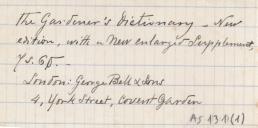 The Gardener's Dictionary - New
edition, with a New enlarged Supplement,
7s. 6D.-
London: George Bell & Sons
4, York Street, Covent Garden
As 13 D(1)